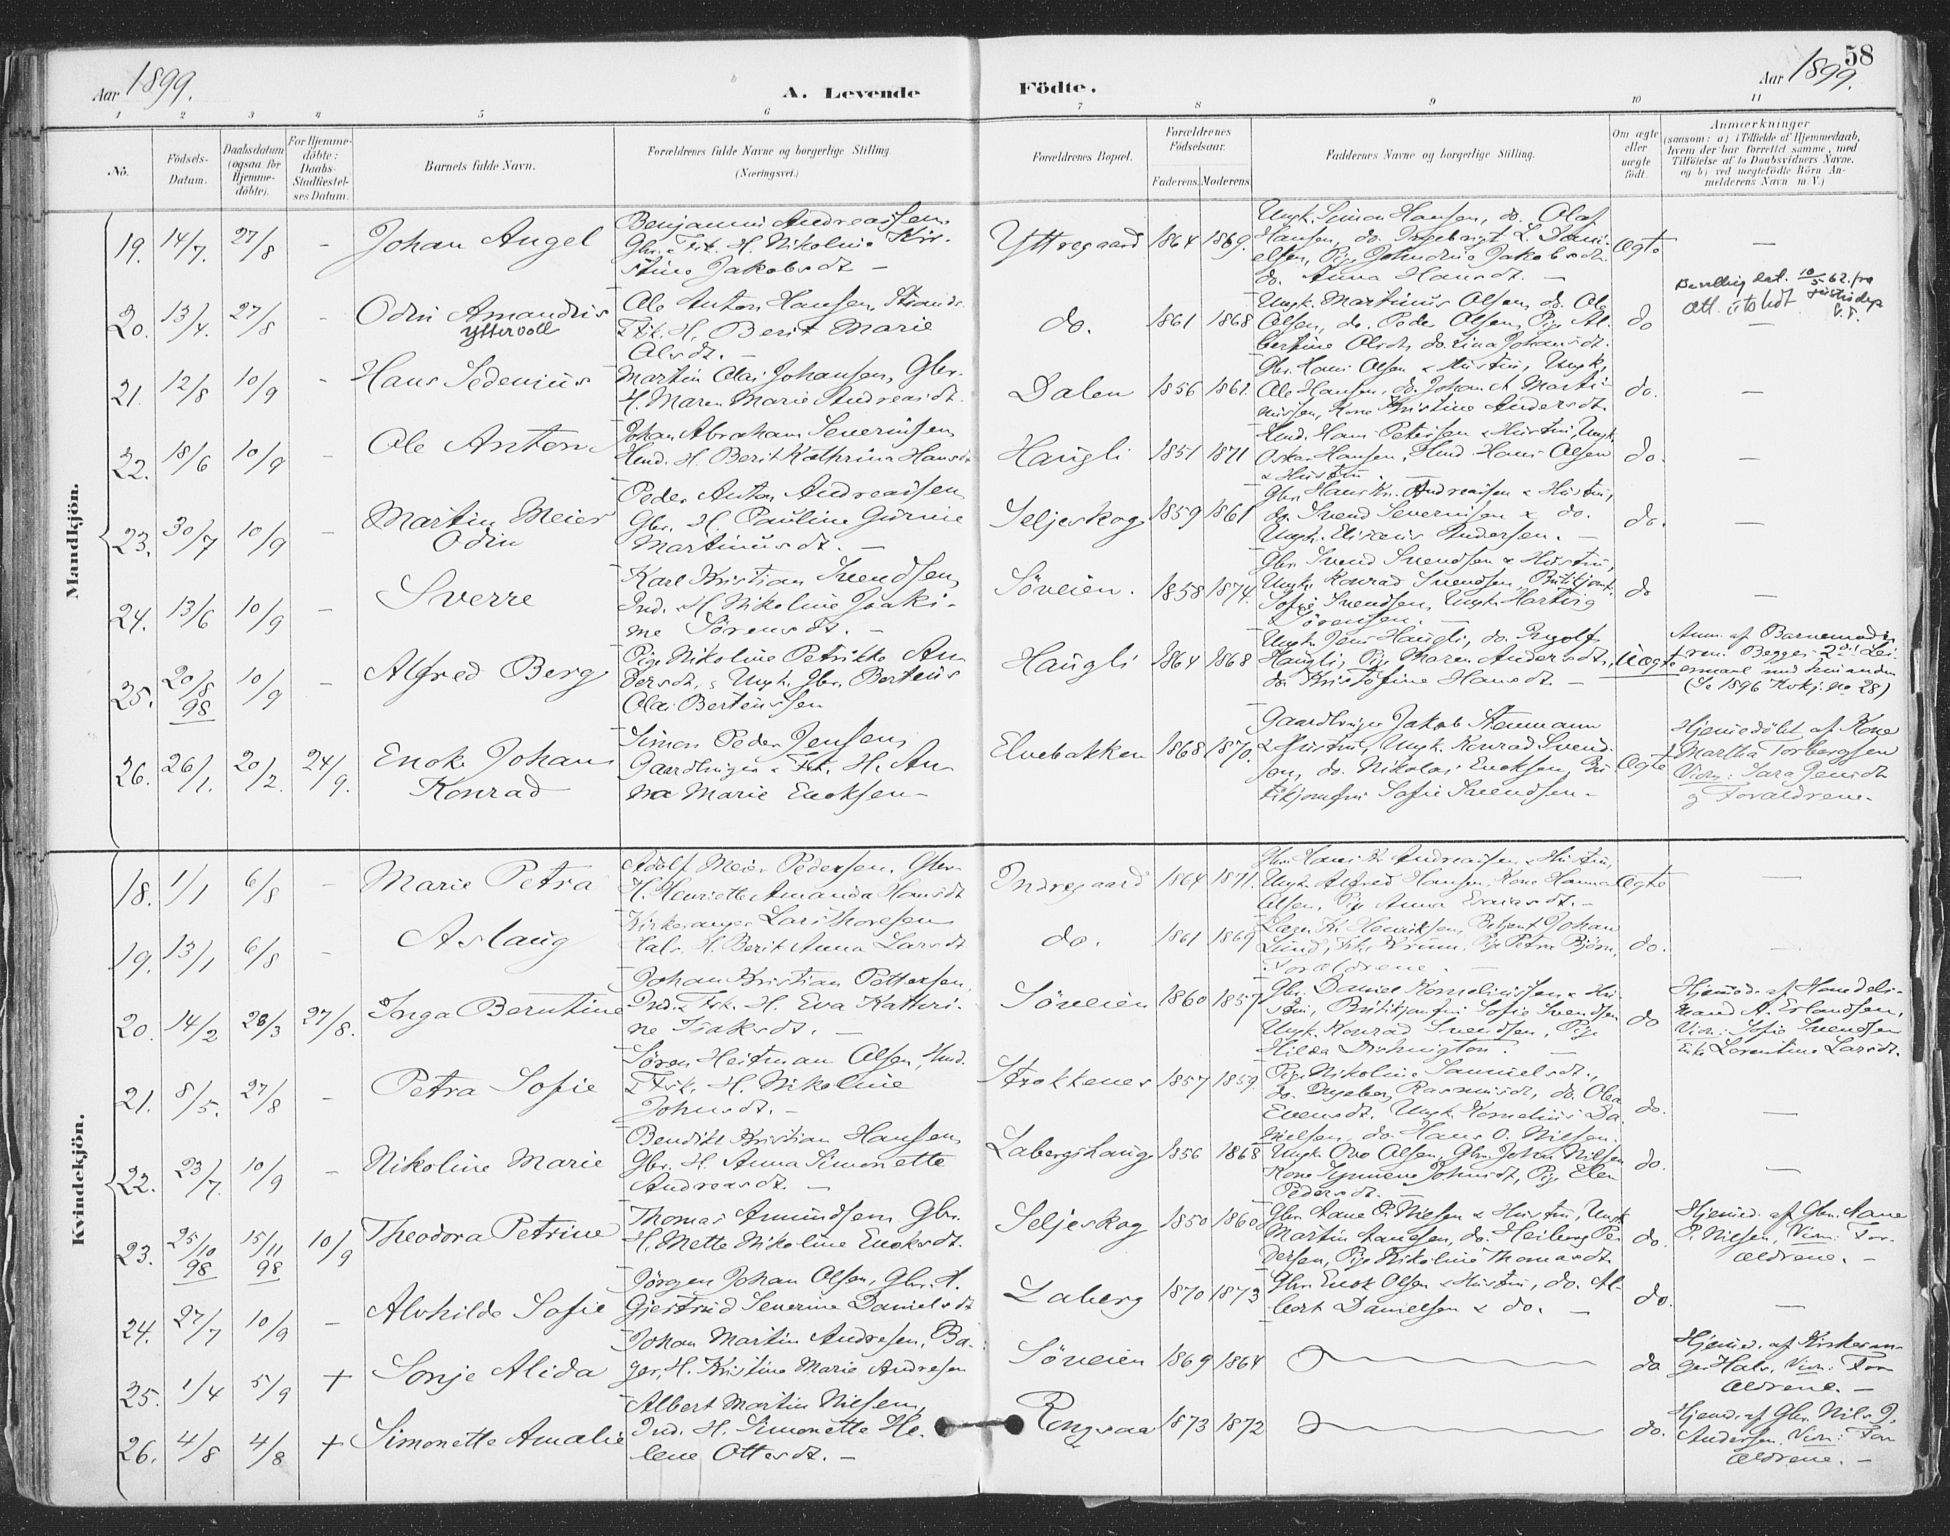 58
Aar 1899.
A. Levende Födte.
Aar 1899.
1 2 3 4 5 6 7 8 9 10 11
No.
Födsels-Datum.
Daabsdatum (ogsaa for Hjemme-döbte).
For Hjemme-döbte: Daabs-Stadfæstelses Datum.
Barnets fulde Navn.
Forældrenes fulde Navne og borgerlige Stilling.
(Næringsvei.)
Forældrenes Bopæl.
Forældrenes Födselsaar.
Faderens. Moderens.
Faddernes Navne og borgerlige Stilling.
Om ægte eller uægte födt.
Anmærkninger
(saasom: a) i Tilfælde af Hjemmedaab,
hvem der har forrettet samme, med
Tilföielse af to Daabsvidners Navne,
og b) ved uægtefödte Börn An-
melderens Navn m. V.)
Mandkjön.
19. 14/7. 27/8 – Johan Angel
Benjamin Andreassen,
Gbr. Fsk. H. Nikoline Kir-
stine Jakobsdt. –
Yttregaard 1864 1869.
Ungk. Simon Hansen, do. Olaf
Hansen, do. Ingebrigt L. Dani-
elsen, Pige Johndine Jakobsdt.
do. Anna Hansdt. –
Ægte –
20. 13/4. 27/8 – Odin Amandus
Yttervoll
Ole Anton Hansen, Strands.
Fsk. H. Berit Marie
Olsdt. –
do. 1861 1868
Ungk. Martinus Olsen, do. Ole
Olsen, do. Peder Olsen, Pige Al-
bertine Olsdt., do. Lina Johansdt.
do
Bevilling dat. 10/5 62. fra
Att. utstedt
–
21. 12/8 10/9 – Hans Sedenius
Martin Olai Johansen, Gbr.
H. Maren Marie Andreasdt.
Dalen 1856 1861.
Gbr. Hans Olsen & Hustru, Ungk.
Ole Hansen, do. Johan A. Marti-
nussen, Kone Kristine Andersdt.
do. –
22. 18/6 10/9 – Ole Anton
Johan Abraham Severinsen
Hmd. H. Berit Kathrina Hansdt
Haugli 1851 1871
Hmd. Hans Petersen & Hustru, Ungk.
Oskar Hansen, Hmd. Hans Olsen
& Hustru
do. –
23. 30/7 10/9 – Martin Meier
Odin
Peder Anton Andreassen
Gbr. H. Pauline Gurine
Martinusdt. –
Seljeskog 1859 1861
Gbr. Hans Kr. Andreassen & Hustru,
do. Svend Severinsen & do.
Ungk. Elisæus Andersen. –
do. –
24. 13/6 10/9 – Sverre
Karl Kristian Svendsen,
Ind. H. Nikoline Joaki-
me Sörensdt. –
Söveien. 1858 1874.
Gbr. Svend Svendsen & Hustru,
Ungk. Konrad Svendsen, Butikjomf.
Sofie Svendsen, Ungk. Hartvig
Sörensen. –
do –
25. 20/8 98 10/9 – Alfred Berg
Pige Nikoline Petrikke An-
dersdt. & Ungk. Gbr. Berteus
Olai Berteussen
Haugli 1864 1868
Ungk. Jens Haugli, do. Ingolf
Haugli, Pige Maren Andersdt.,
do. Kristofine Hansdt. –
Uægte
Anm. af Barnemode-
ren. Begges 2det Lei-
ermaal med hinanden
(Se 1896 Kvkj. No 28)
26. 26/1. 20/2. 24/9. Enok Johan
Konrad
Simon Peder Jensen,
Gaardbruger & Fsk. H. An-
na Marie Enoksen –
Elvebakken 1868 1870.
Gaardbruger Jakob Stenmann
& Hustru, Ungk. Konrad Svend-
sen, do. Nikolai Enoksen, Bu-
tikjomfru Sofie Svendsen. –
Ægte
Hjemmedöbt af Kone
Martha Torbergsen
Vidn: Sara Jensdt
og Forældrene. –
Kvindekjön.
18. 1/1 6/8 – Marie Petra
Adolf Meier Pedersen, Gbr.
H. Henriette Amanda Hansdt
Indregaard 1864 1871.
Gbr. Hans Kr. Andreassen & Hustru,
Ungk. Alfred Hansen, Kone Hanna
Olsen, Pige Anna
Ægte –
19. 13/1 6/8 – Aslaug
Kirkesanger Lars Thoresen
Hals H. Berit Anna Larsdt
do. 1861 1869
Lærer Kr. Henriksen, Betjent Johan
Lund, Frk. Krunn, Pige Petra Björn,
Forældrene. –
do. –
20. 14/2 26/3 27/8. Inga Berntine
Johan Kristian Pettersen,
Ind. Fsk. H. Eva Kathri-
ne Isaksdt. –
Söveien 1860 1857
Gbr. Daniel Kornelinussen & Hu-
stru, Butikjomfru Sofie Svendsen
Ungk. Konrad Svendsen, Pige
Hilda
do
Hjemmed. af Handels-
mand A. Erlandsen,
Vidn: Sofie Svendsen
Enke Lorentine Larsdt.
21. 8/5. 27/8 – Petra Sofie
Sören Heitman Olsen, Hmd.
Fsk. H. Nikoline
Johnsdt. –
Strokkenes 1857 1859
Pige Nikoline Samuelsdt.,
do. Ingeborg Rasmusdt, do. Olea
Evensdt. Ungk. Kornelius Da-
nielsen, do. Hans O. Nilsen.
do. –
22. 23/7. 10/9 – Nikoline Marie
Bendikt Kristian Hansen,
Gbr. H. Anna Simonette
Andreasdt. –
Labergshaug 1856 1868
Ungk. Ove Olsen, Gbr. Johan Nilsen
Kone Johnsdt, Pige Elen
Pedersdt. –
do. –
23. 25/10 98 15/11 98 10/9 Theodora Petrine
Thomas Amundsen, Gbr.
H. Mette Nikoline Enoksdt.
Seljeskog 1850 1860
Gbr. Aane P. Nilsen & Hustru, Ungk.
Martin Hansen, do. Heiberg Pe-
dersen, Pige Nikoline Thomasdt.
do.
Hjemmed. af Gbr. Aane
P. Nilsen, Vidn: For-
ældrene. –
24. 27/7 10/9 – Alvhilde Sofie
Jörgen Johan Olsen, Gbr. H.
Gjertrud Severine Danielsdt
Laberg 1870 1873
Gbr. Enok Olsen & Hustru, do. Al-
bert Danielsen & do. –
do. –
25. 1/4 5/9 + Sonje Alida
Johan Martin Andresen, Ba-
ger, H. Kristine Marie Andresen
Söveien 1869 1864
do.
Hjemmed. af Kirkesan-
ger Hals, Vidn: For-
ældrene. –
26. 4/8 4/8 + Simonette Amalie
Albert Martin Nilsen,
Ind. H. Simonette He-
lene Ottesdt. –
Rongsaa 1873 1872
do.
Hjemd. af Gbr. Nils J.
Andersen. Vidn: For-
ældrene. –